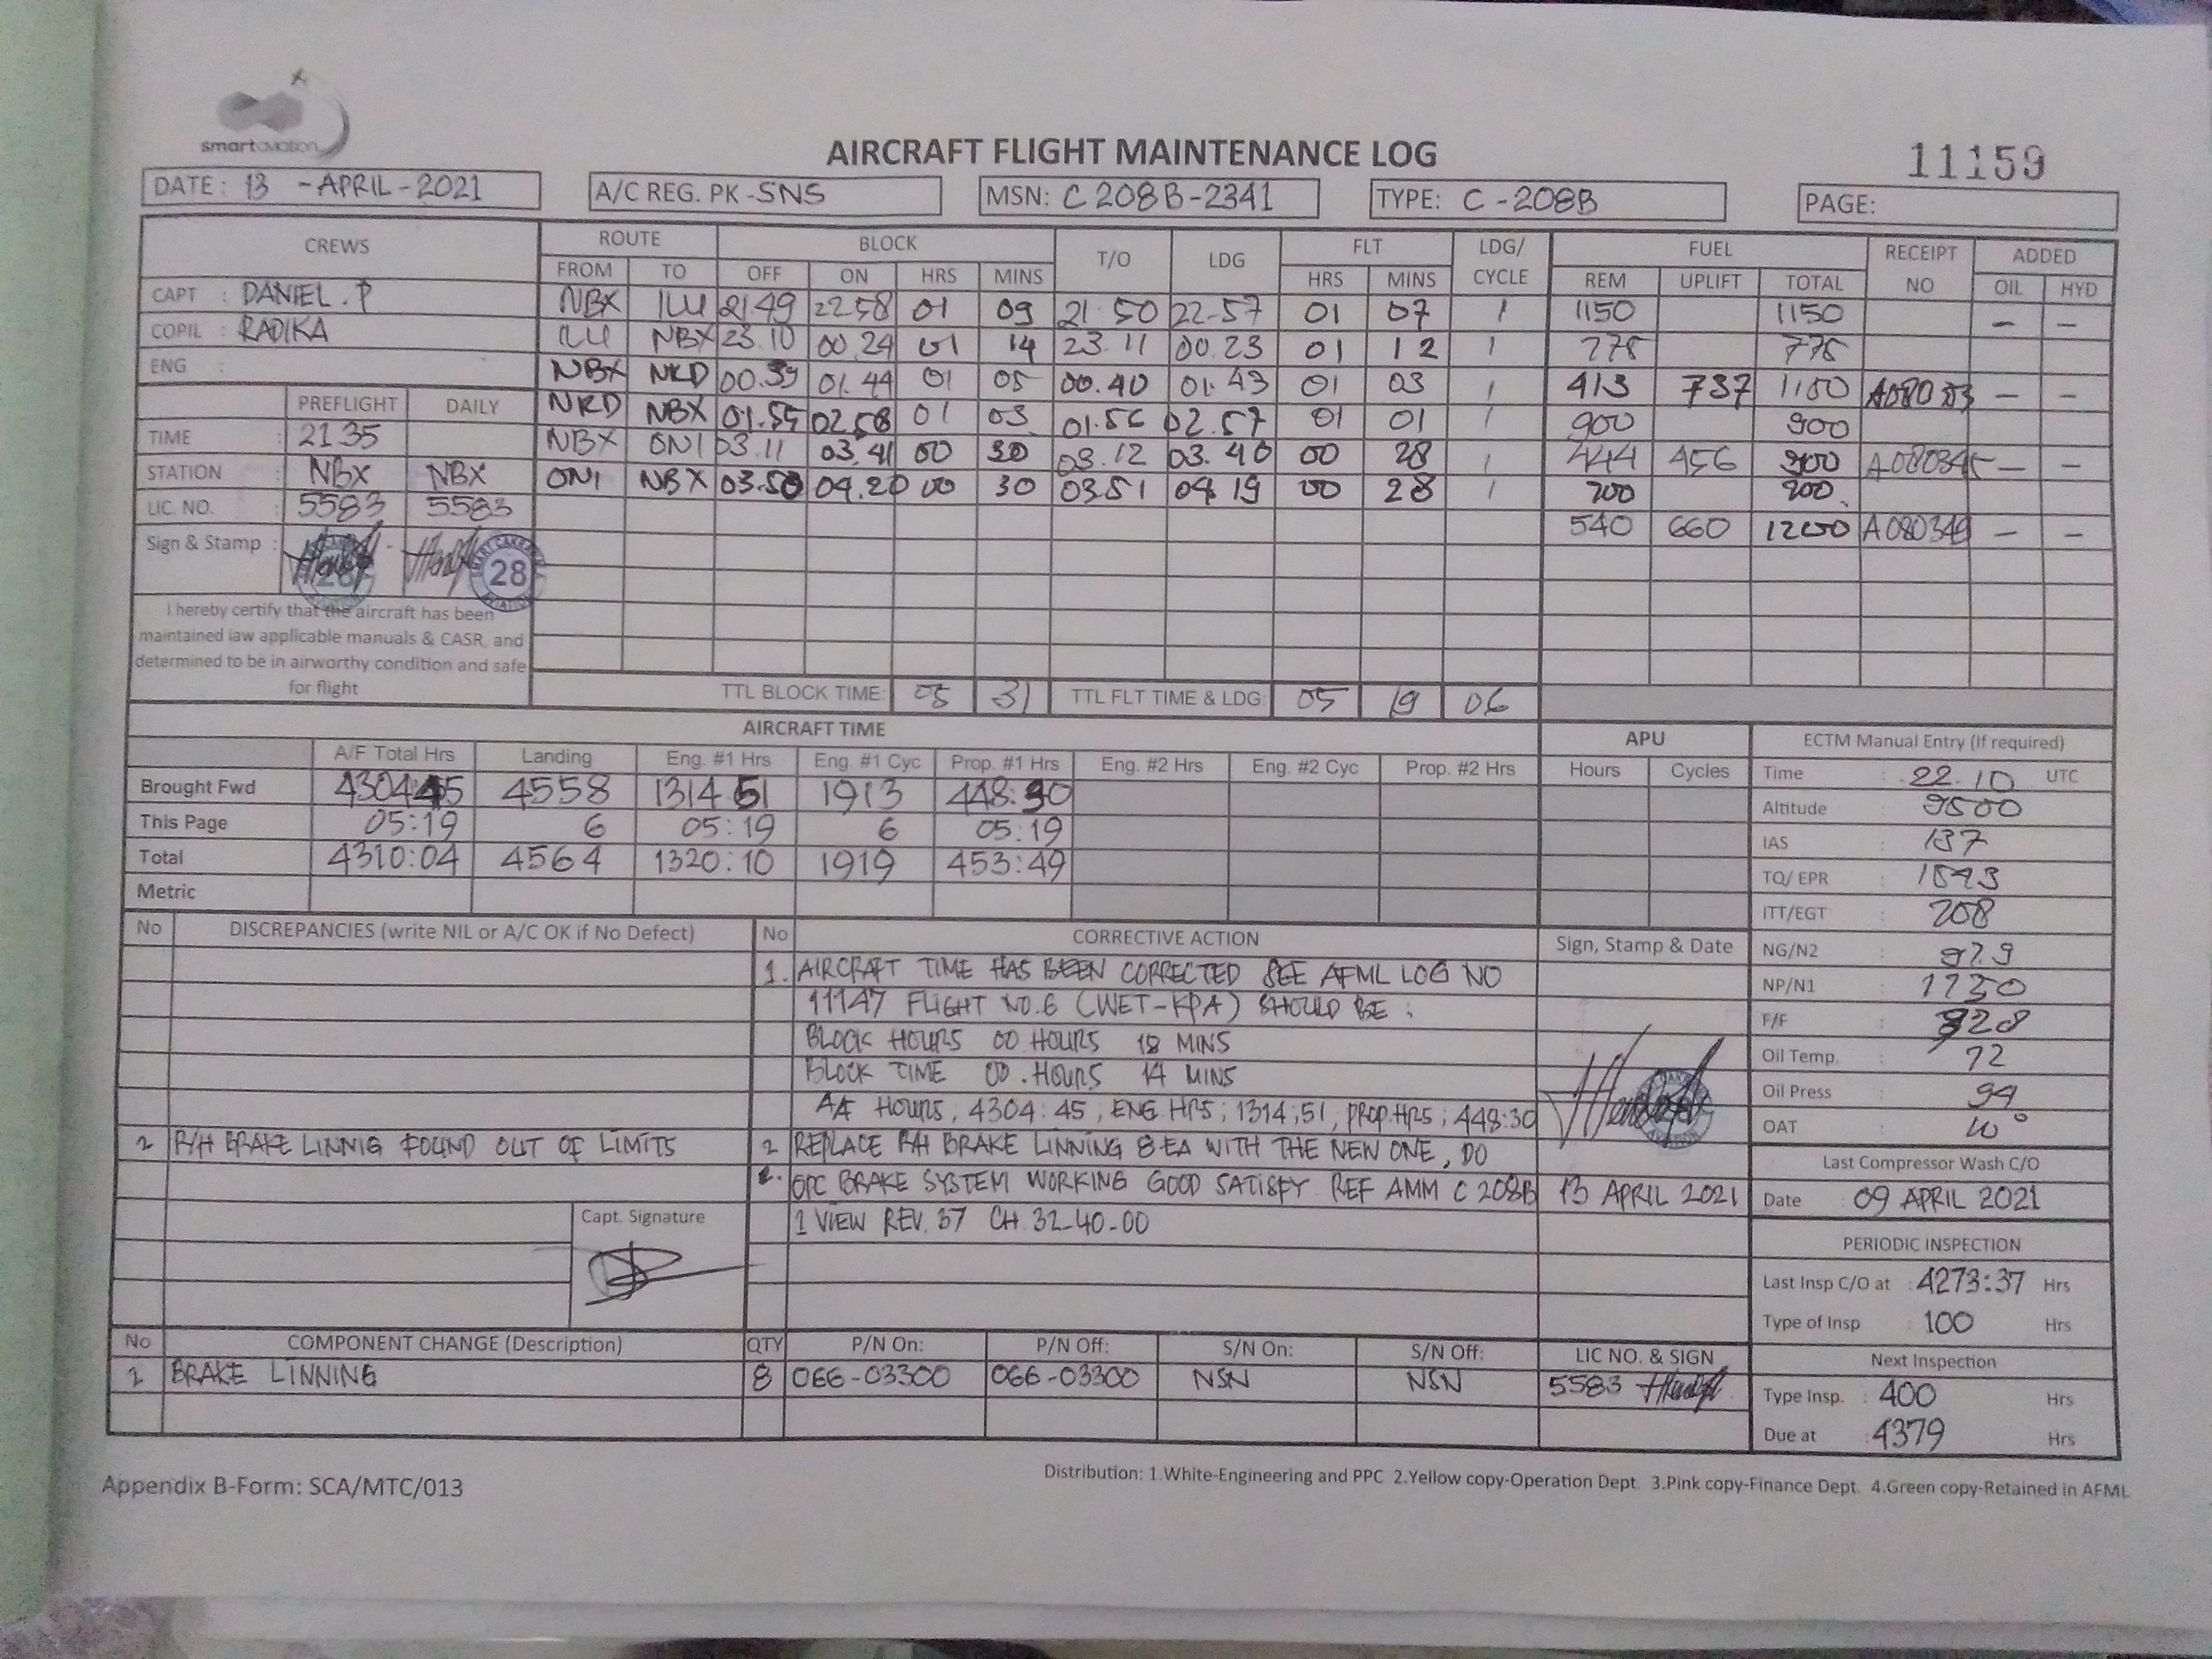 smartaviation
AIRCRAFT FLIGHT MAINTENANCE LOG
11159
DATE: 13 -APRIL-2021 A/C REG. PK-SNS MSN: C208B-2341 TYPE: C-208B PAGE:
CREWS ROUTE BLOCK T/O LDG FLT LDG/CYCLE FUEL RECEIPT NO ADDED
FROM TO OFF ON HRS MINS HRS MINS REM UPLIFT TOTAL OIL HYD
CAPT : DANIEL.P NBX ILU 21.49 22.58 01 09 21.50 22.57 01 07 1 1150 1150 – –
COPIL : RADIKA ILU NBX 23.10 00.24 01 14 23.11 00.23 01 12 1 775 775
ENG : NBX NRD 00.39 01.44 01 05 00.40 01.43 01 03 1 413 737 1150 – –
PREFLIGHT DAILY NRD NBX 01.55 02.58 01 03 01.56 02.57 01 01 1 900 900
TIME : 21.35 NBX ONI 03.11 03.41 00 30 03.12 03.40 00 28 1 444 456 900 A080345 – –
STATION : NBX NBX ONI NBX 03.50 04.20 00 30 03.51 04.19 00 28 1 700 700
LIC. NO. : 5583 5583 540 660 1200 A080349 – –
Sign & Stamp :
28
I hereby certify that the aircraft has been
maintained iaw applicable manuals & CASR, and
determined to be in airworthy condition and safe
for flight
TTL BLOCK TIME: 05 31 TTL FLT TIME & LDG: 05 19 06
AIRCRAFT TIME APU ECTM Manual Entry (If required)
A/F Total Hrs Landing Eng. #1 Hrs Eng. #1 Cyc Prop. #1 Hrs Eng. #2 Hrs Eng. #2 Cyc Prop. #2 Hrs Hours Cycles
Brought Fwd 430445 4558 1314 51 1913 448:30
This Page 05:19 6 05:19 6 05:19
Total 4310:04 4564 1320:10 1919 453:49
Metric
Time : 22.10 UTC
Altitude : 9500
IAS : 137
TQ/ EPR :
ITT/EGT : 708
NG/N2 : 97.9
NP/N1 :
F/F : 328
Oil Temp. : 72
Oil Press : 94
OAT : 10°
Last Compressor Wash C/O
Date : 09 APRIL 2021
PERIODIC INSPECTION
Last Insp C/O at : 4273:37 Hrs
Type of Insp : 100 Hrs
Next Inspection
Type Insp. : 400 Hrs
Due at : 4379 Hrs
No DISCREPANCIES (write NIL or A/C OK if No Defect) No CORRECTIVE ACTION Sign, Stamp & Date
1. AIRCRAFT TIME HAS BEEN CORRECTED SEE AFML LOG NO
11147 FLIGHT NO.6 (WET-KPA) SHOULD BE :
BLOCK HOURS 00 HOURS 18 MINS
BLOCK TIME 00 . HOURS 14 MINS
AF HOURS; 4304:45, ENG HRS; 1314;51, PROP.HRS; 448:30
2 R/H BRAKE LINNIG FOUND OUT OF LIMITS 2 REPLACE R/H BRAKE LINNING 8 EA WITH THE NEW ONE, DO
OPC BRAKE SYSTEM WORKING GOOD SATISFY REF AMM C 208B 13 APRIL 2021
1 VIEW REV. 37 CH. 32-40-00
Capt. Signature
No COMPONENT CHANGE (Description) QTY P/N On: P/N Off: S/N On: S/N Off: LIC NO. & SIGN
2 BRAKE LINNING 8 066-03300 066-03300 NSN NSN 5583
Appendix B-Form: SCA/MTC/013
Distribution: 1.White-Engineering and PPC 2.Yellow copy-Operation Dept. 3.Pink copy-Finance Dept. 4.Green copy-Retained in AFML